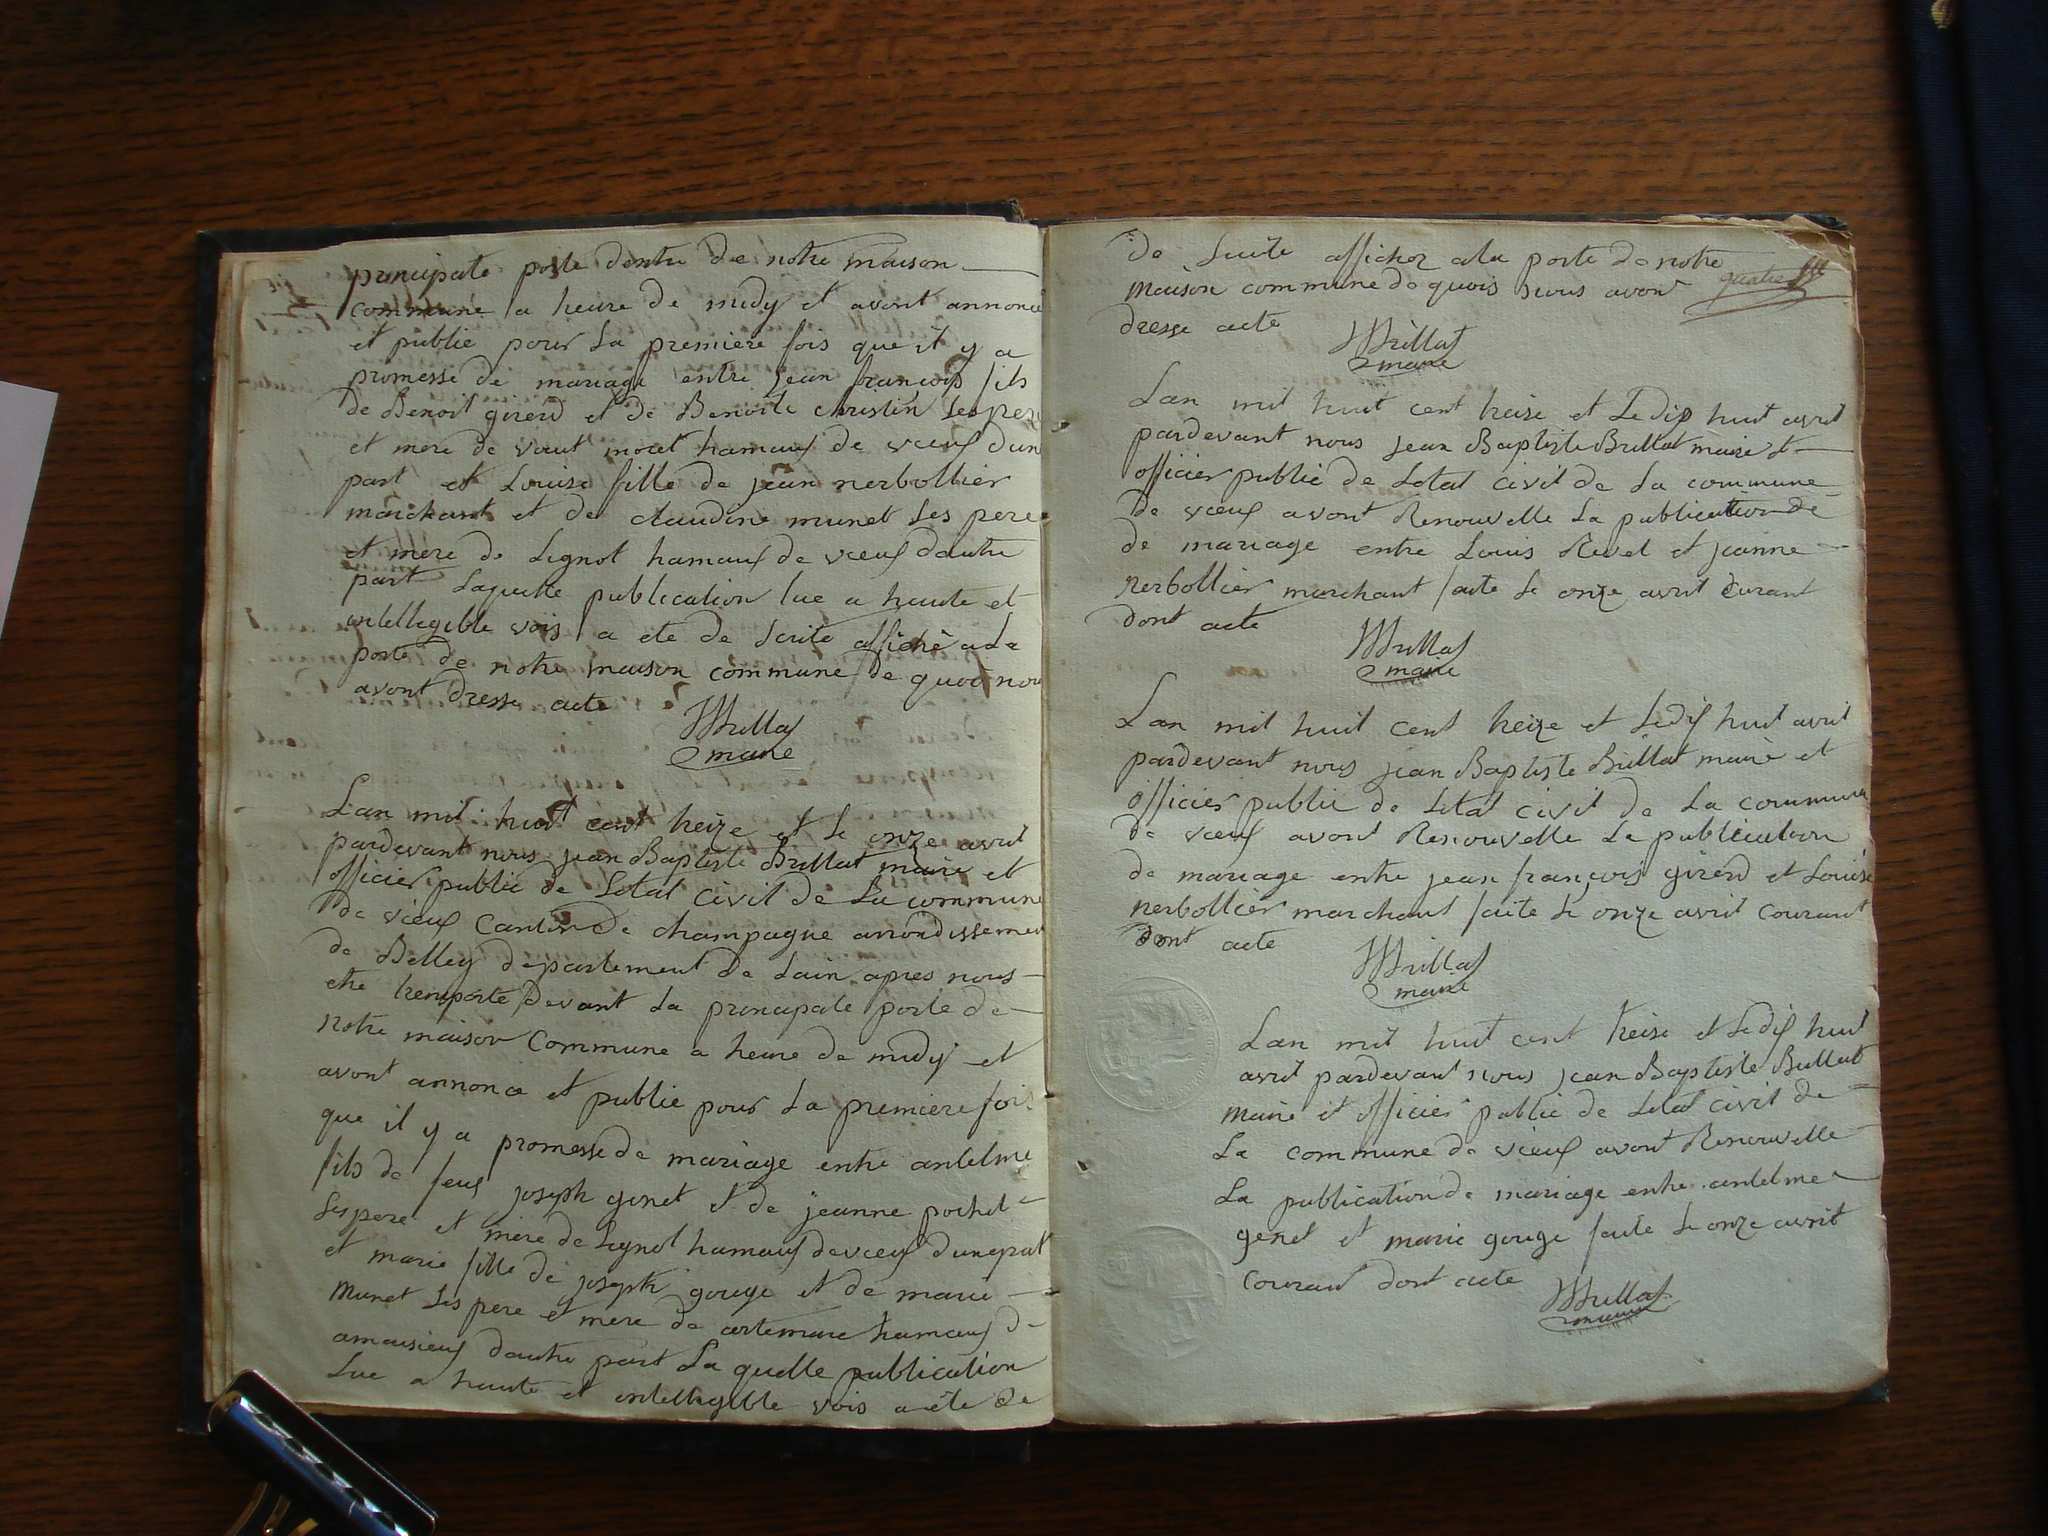 principale porte dentre de notre maison
commune a heure de midy et avont annoncé
et publie pour la premiere fois que il y a
promesse de mariage entre jean françois fils
de Benoit girerd et de Benoite christin les pere
et mere de vaux moret hamaux de vœux dun
part et Louise fille de jean nerbollier
marchant et de claudine munet les pere
et mere de Lignot hamaux de vœux dautre
part Laquelle publication lue a haute et
intellegible vois a ete de suite affiché a la
porte de notre maison commune de quoi nous
avont dresse acte
JBrillat
maire
Lan mil huit cent treize et le onze avril
pardevant nous jean Baptiste Brillat maire et
officier public de Letat civil de La commune
de vieux Canton de champagne arrondissement
de Belley departement de Lain apres nous
etre transporte devant La principale porte de
notre maison Commune a heure de midy et
avont annonce et publie pour La premiere fois
que il y a promesse de mariage entre antelme
fils de feux joseph genet et de jeanne pochet
Les pere et mere de Lignot hamaux de vœux dune part
et marie fille de joseph gouge et de marie
munet Les pere et mere de artemare hamaux de
amaisieux dautre part La quelle publication
Lue a haute et intellegible vois a ete de
de suite afficher a la porte de notre
maison commune de quois nous avont
quatre
dresse acte
JBrillat
maire
Lan mil huit cent treise et Le dix huit avril
pardevant nous jean Baptiste Brillat maire et
officier public de Letat civil de La commune
de vœux avont Renouvelle La publication de
de mariage entre Louis Revel et jeanne
nerbollier marchant faite le onze avril Curant
dont acte
JBrillat
maire
Lan mil huit cent treize et Le dix huit avril
pardevant nous jean Baptiste Brillat maire et
officier public de Letat civil de La commune
de vœux avont Renouvelle La publication
de mariage entre jean françois girerd et Louise
nerbollier marchant faite le onze avril Courant
dont acte
JBrillat
maire
Lan mil huit cent treise et Le dix huit
avril pardevant nous jean Baptiste Brillat
maire et officier public de Letat civil de
La commune de vieux avont Renouvelle
La publication de mariage entre antelme
genet et marie gouge faite le onze avril
Courant dont acte
JBrillat
maire